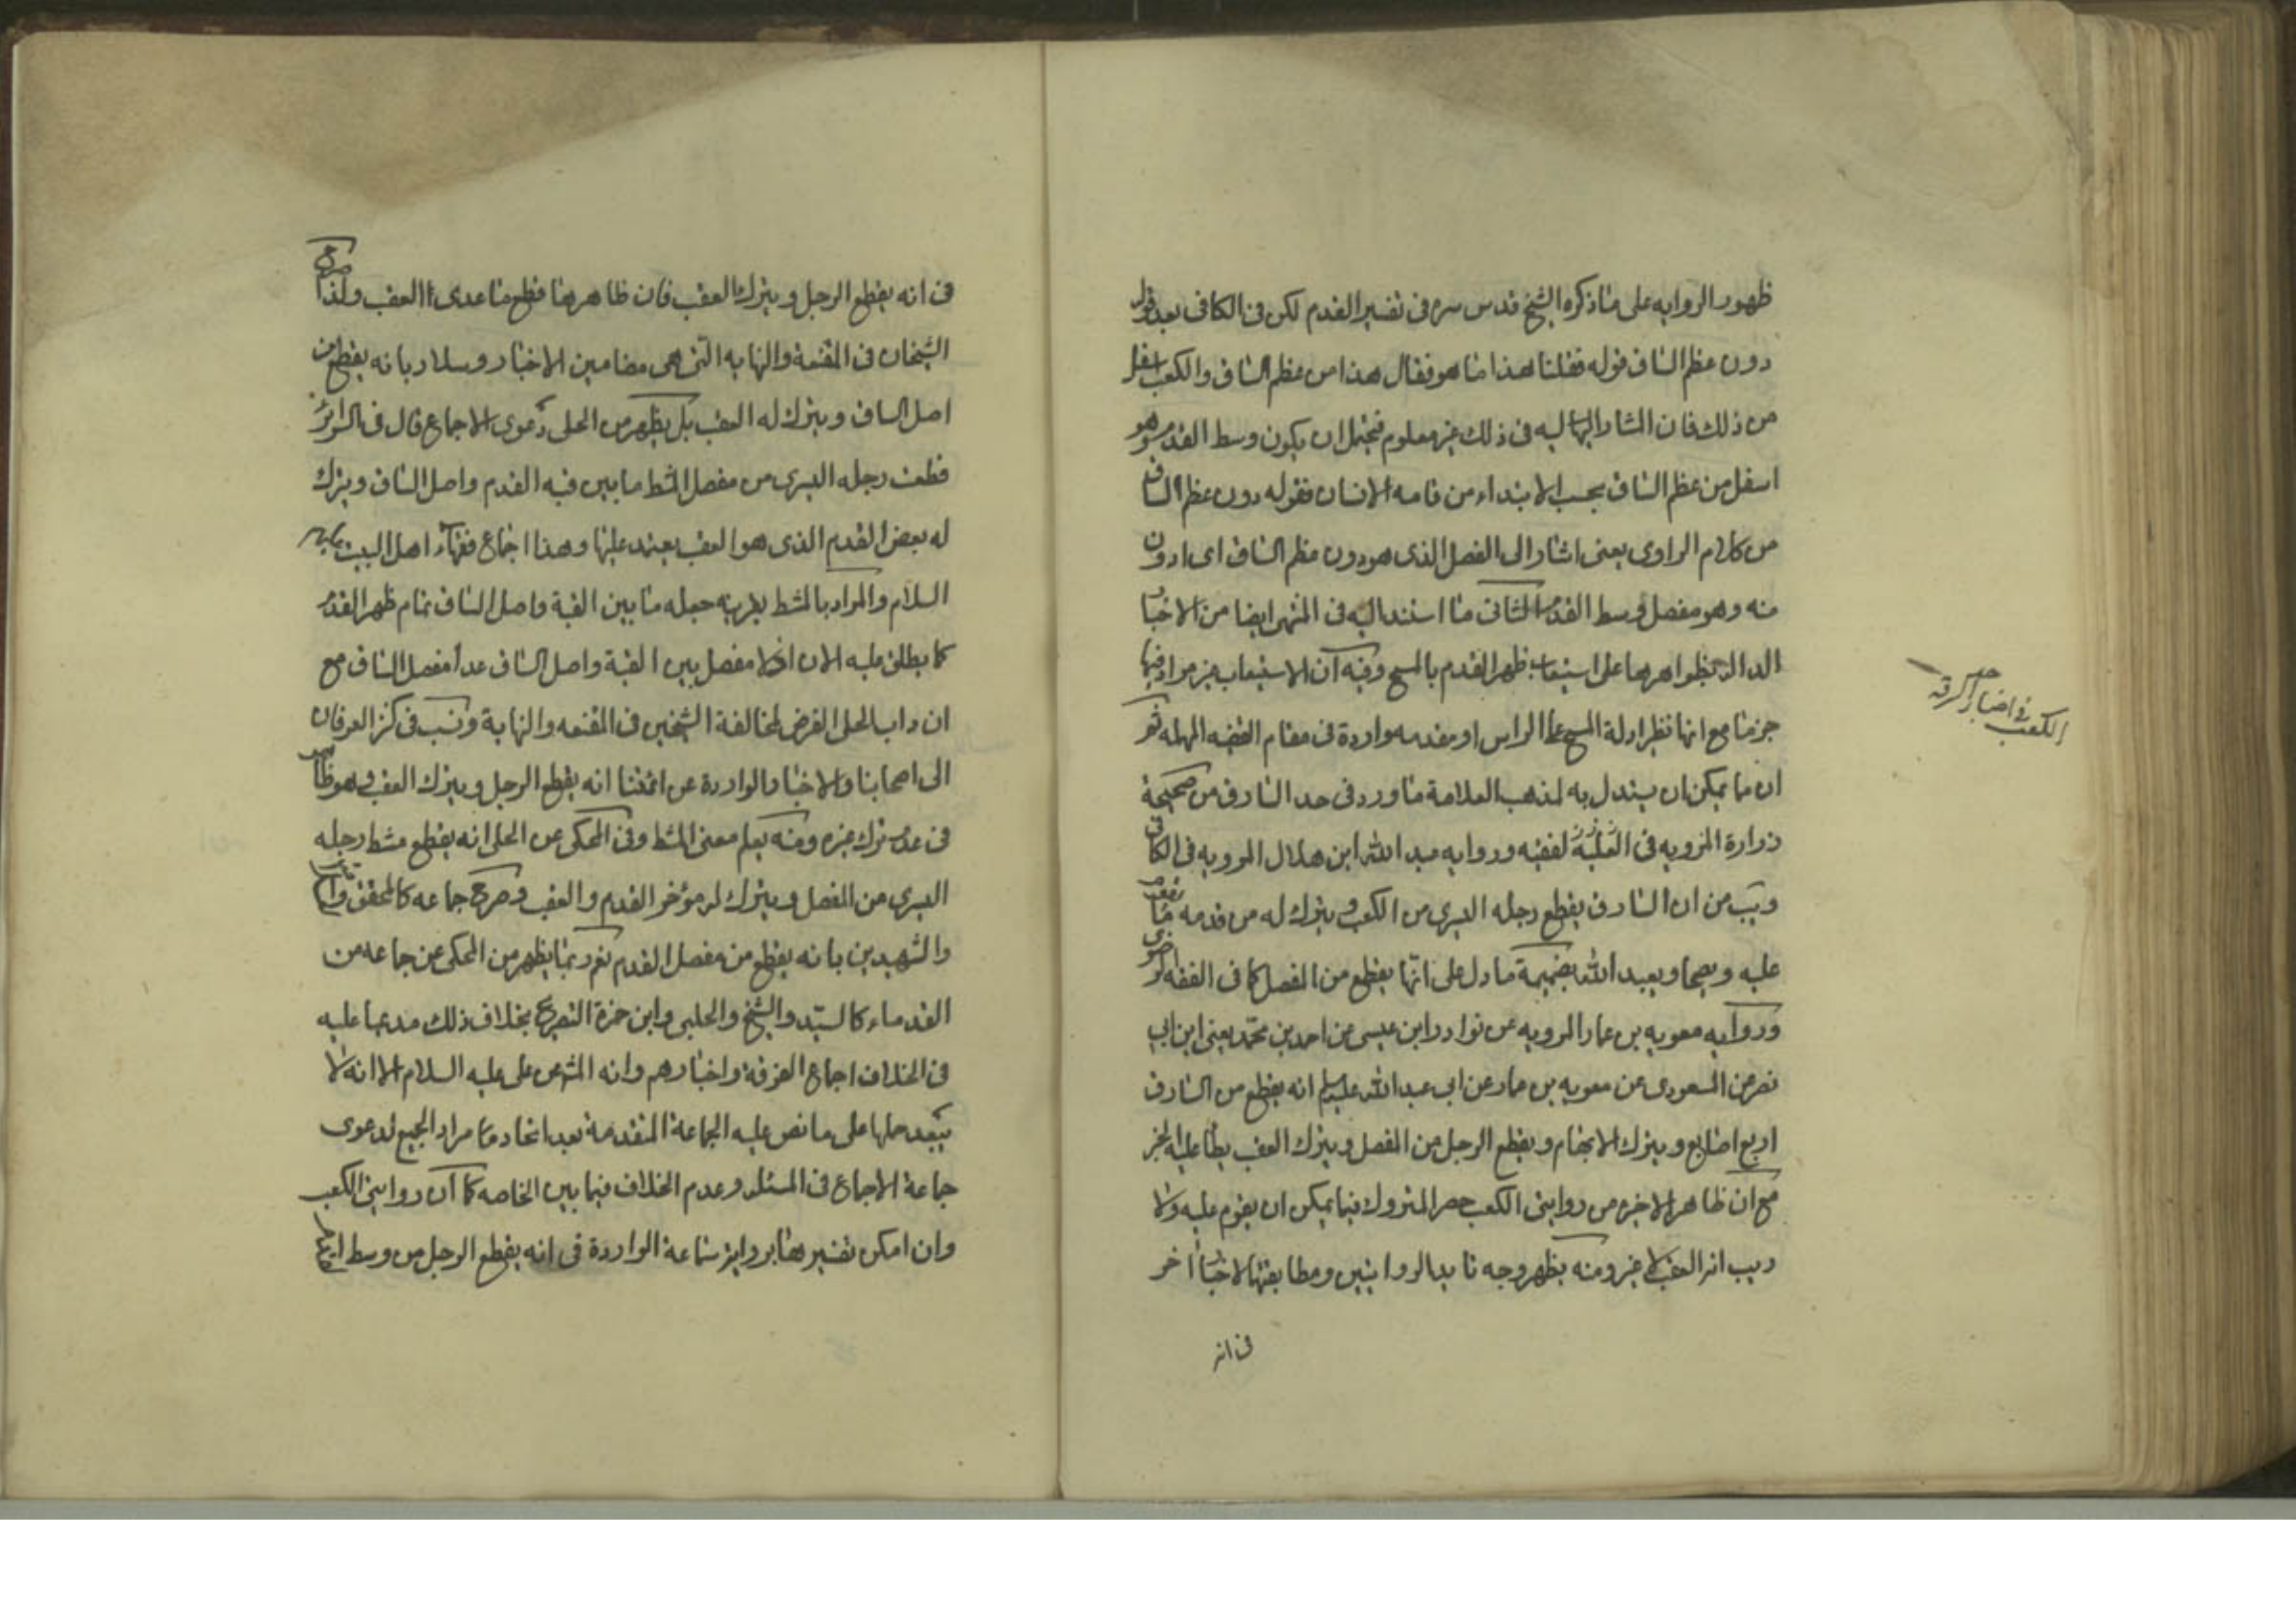 ظهور الروايه على ما ذكره الشيخ قدس سره فى تفسير القدم لكن فى الكافى بعد قوله
دون عظم الساق قوله فقلنا هذا ما هو فقال هذا من عظم الساق والكعب اسفل
من ذلك فان المشار اليه فى ذلك غير معلوم فيحتمل ان يكون وسط القدم وهو
اسفل من عظم الساق بحسب الابتداء من قامه الانسان فقوله دون عظم الساق
من كلام الراوى يعنى اشار الى المفصل الذى هو دون عظم الساق اى ادون
منه وهو مفصل وسط القدم الثانى ما استند اليه فى المنتهى ايضا من الاخبار
الداله بظواهرها على استيعاب ظهر القدم بالمسح وفيه ان الاستيعاب غير مراد فيها
جزما مع انها نظير ادلة المسح على الراس او مقدمه واردة فى مقام القضيه المهمله ثم
ان ما يمكن ان يستدل به لمذهب العلامة ما ورد فى حد السارق من صحيحة
زرارة المرويه فى الفقيه وروايه عبد الله ابن هلال المرويه فى الكافى
ويب من ان السارق يقطع رجله اليسرى من الكعب ويترك له من قدمه ما يقوم
عليه ويصلى ويعبد الله بضميمة ما دل على انها يقطع من المفصل كما فى الفقه الرضوى
وروايه معويه بن عمار المرويه عن نوادر ابن عيسى عن احمد بن محمد يعنى ابن ابى
نصر عن المسعودى عن معويه بن عمار عن ابى عبد الله عليه السلام انه يقطع من السارق
اربع اصابع ويترك الابهام ويقطع الرجل من المفصل ويترك العقب يطأ عليه الخبر
مع ان ظاهر الاخيره من روايتى الكعب حصر المتروك فيما يمكن ان يقوم عليه ولا
ريب انه العقب لا غير ومنه يظهر وجه تاييد الروايتين ومطابقتها لاخبار اخر
فى انه
الكعب فى اخبار حد السرقه
فى انه يقطع الرجل ويترك العقب فان ظاهرها قطع ما عدى العقب ولذا صرح
الشيخان فى المقنعة والنهايه التى هى مضامين الاخبار وسلار بانه يقطع من
اصل الساق ويترك له العقب بل يظهر من الحلى دعوى الاجماع قال فى السرائر
قطعت رجله اليسرى من مفصل المشط ما بين قبه القدم واصل الساق ويترك
له بعض القدم الذى هو العقب يعتمد عليها وهذا اجماع فقهاء اهل البيت عليهم
السلام والمراد بالمشط بقرينه جعله ما بين القبة واصل الساق تمام ظهر القدم
كما يطلق عليه الان اذ لا مفصل بين القبة واصل الساق عدا مفصل الساق مع
ان داب الحلى التعرض لمخالفة الشيخين فى المقنعه والنهاية ونسب فى كنز العرفان
الى اصحابنا والاخبار الواردة عن ائمتنا انه يقطع الرجل ويترك العقب وهو ظاهر
فى عدم ترك غيره ومنه يعلم معنى المشط وفى المحكى عن الحلى انه يقطع مشط رجله
اليسرى من المفصل ويترك له مؤخر القدم والعقب وصرح جماعه كالمحقق و
والشهيدين بانه يقطع من مفصل القدم نعم ربما يظهر من المحكى عن جماعه من
القدماء كالسيد والشيخ والحلبى وابن حمزة التصريح بخلاف ذلك مدعيا عليه
فى الخلاف اجماع الفرقة واخبارهم وانه المشهور عن على عليه السلام الا انه لا
يبعد حملها على ما نص عليه الجماعة المتقدمة بعد اتحاد مراد الجميع لدعوى
جماعة الاجماع فى المسئله وعدم الخلاف فيما بين الخاصه كما ان روايتى الكعب
وان امكن تفسيرها بروايه سماعة الواردة فى انه يقطع الرجل من وسط